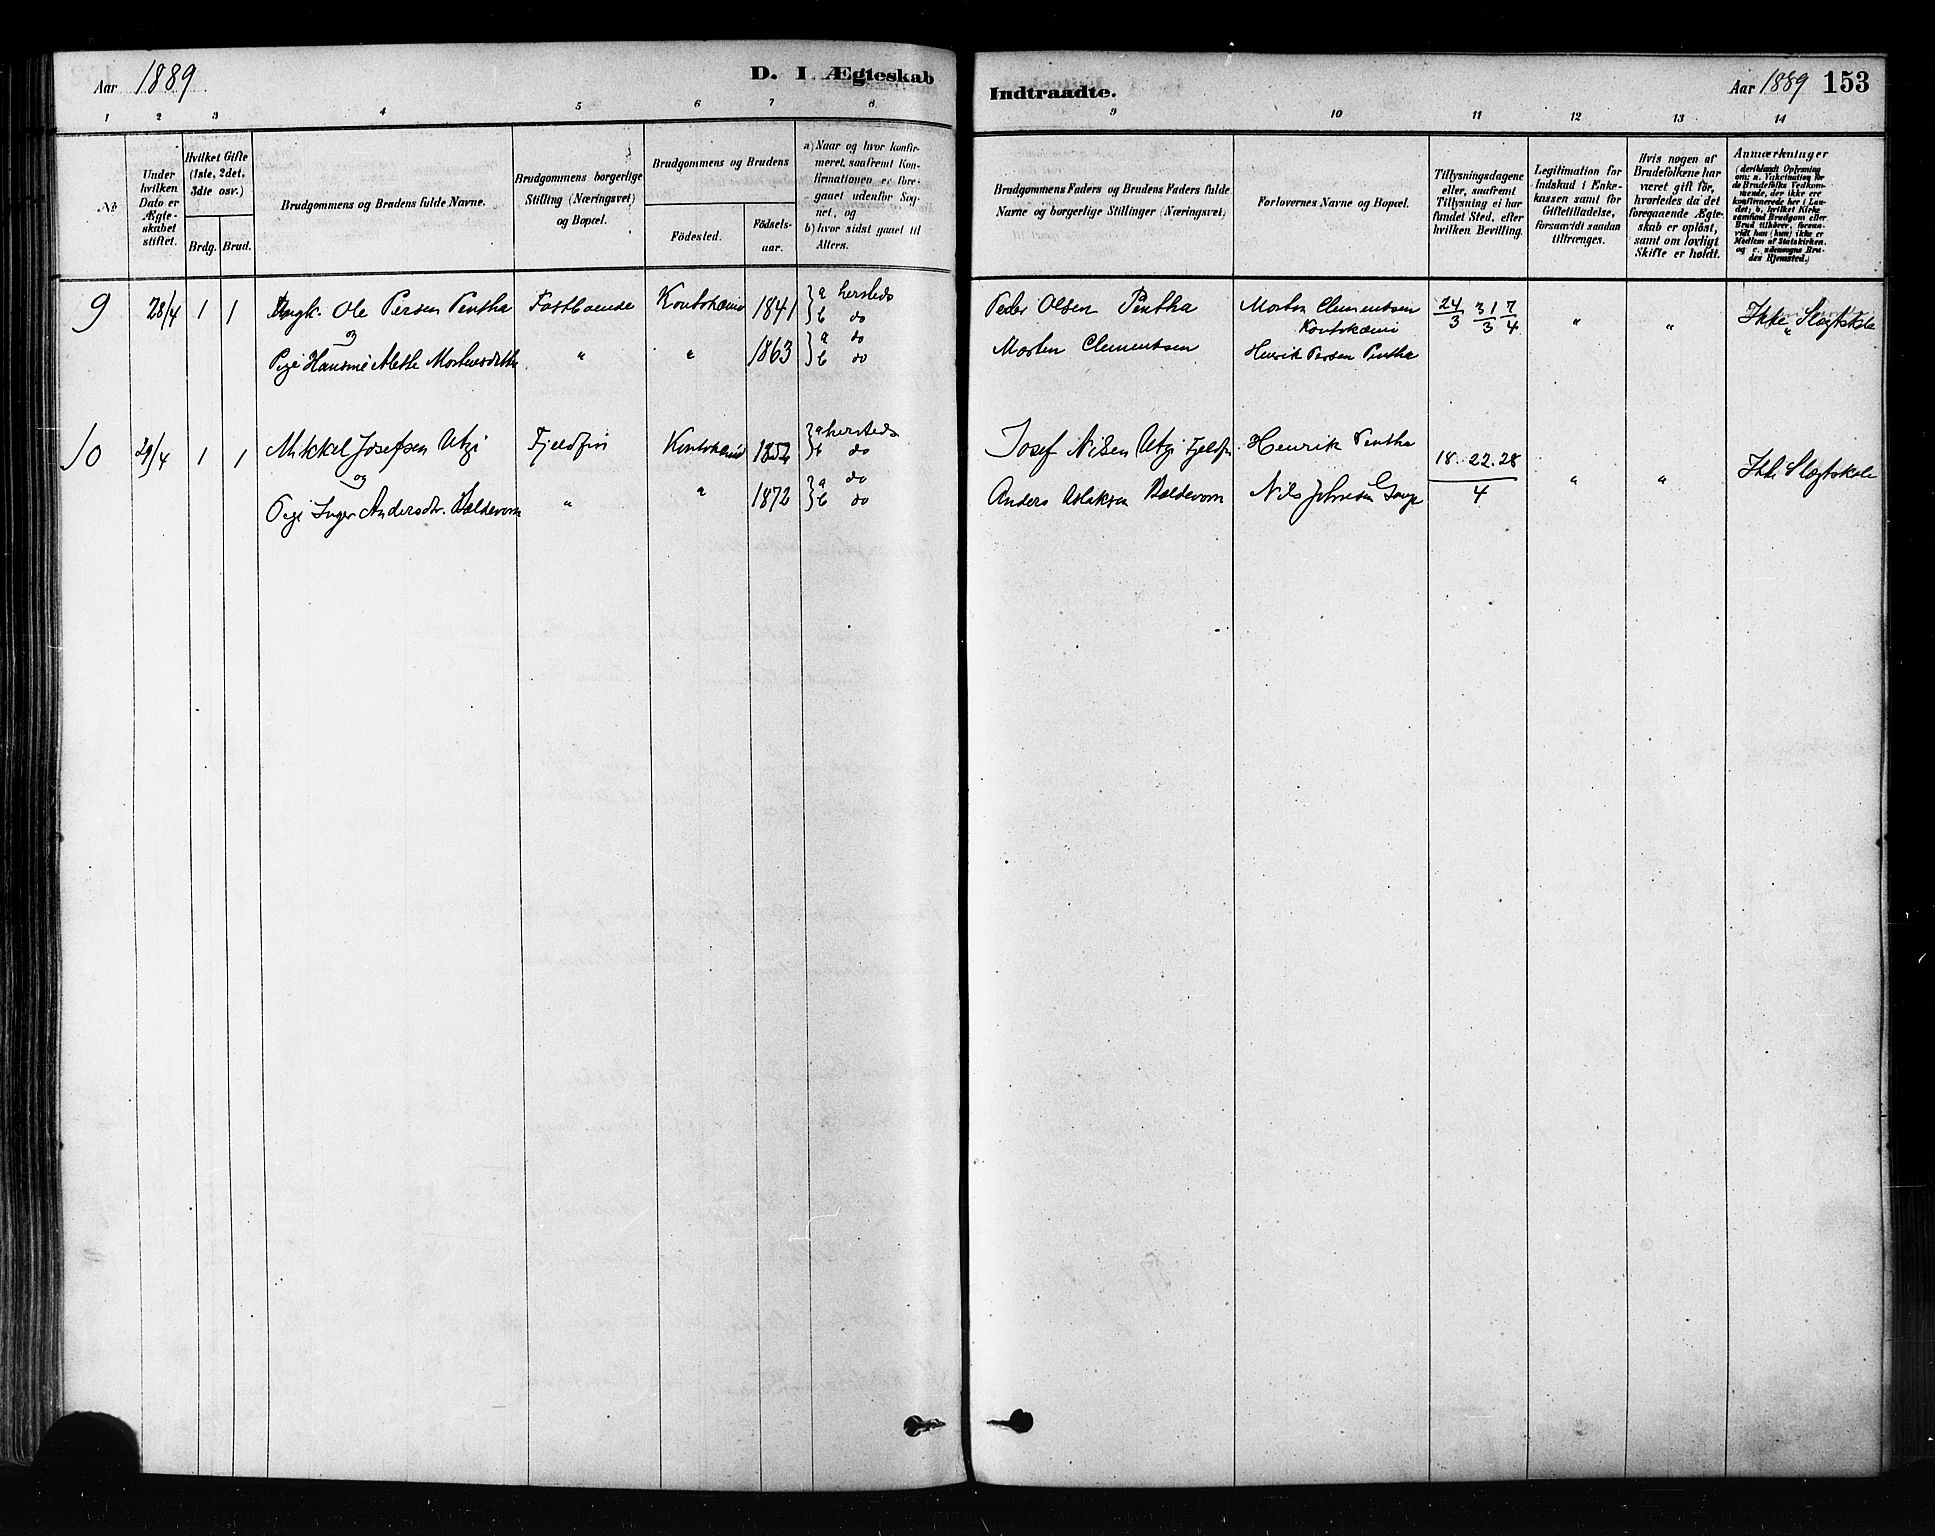 Aar 1889
D. I Ægteskab
1 2 3 4 5 6 7 8
No
Under hvilken Dato er Ægteskabet stiftet.
Hvilket Gifte (1ste, 2det, 3die osv.)
Brdg. Brud.
Brudgommens og Brudens fulde Navne.
Brudgommens borgerlige Stilling (Næringsvei) og Bopæl.
Brudgommens og Brudens
Födested.
Födsels-aar.
a) Naar og hvor konfirmeret, saafremt Konfirmationen er foregaaet udenfor Sognet, og
b) hvor sidst gaaet til Alters.
9 28/4 1 1 Ungk. Ole Persen Pentha Fastboende Koutokæino 1841 a hersteds
b do
og
Pige Hansine Alette Mortensdatter " " 1863 a do
b do
10 29/4 1 1 Mikkel Josefsen Utzi Fjeldfin Koutokæino 1852 a hersteds
b do
og
Pige Inger Andersdtr. Bældevom " " 1872 a do
b do
Indtraadte.
Aar 1889 153
9 10 11 12 13 14
Brudgommens Faders og Brudens Faders fulde Navne og borgerlige Stillinger (Næringsvei)
Forlovernes Navne og Bopæl.
Tillysningsdagene eller, saafremt Tillysning ei har fundet Sted, efter hvilken Bevilling.
Legitimation for Indskud i Enkekassen samt for Giftetilladelse, forsaavidt saadan tiltrænges.
Hvis nogen af Brudefolkene har været gift för, hvorledes da det foregaaende Ægteskab er oplöst, samt om lovligt Skifte er holdt.
Anmærkninger (deriblandt Oplysning om: a. Vakcination for de Brudefolks Vedkommende, der ikke ere konfirmerede her i Landet; b. hvilket Kirkesamfund Brudgom eller Brud tilhörer, forsaavidt han (hun) ikke er Medlem af Statskirken, og c. udensogns Brudes Hjemsted.)
Peder Olsen Pentha Morten Clementsen 24/3 31/3 7/4 " " Ikke Slægtskab
Koutokæino
Morten Clementsen Henrik Persen Pentha
Josef Nilsen Utzi Fjeldfin Henrik Pentha 18. 22. 28 / 4 " " Ikke Slægtskab
Anders Aslaksen Bældevom Nils Johnsen Gaup